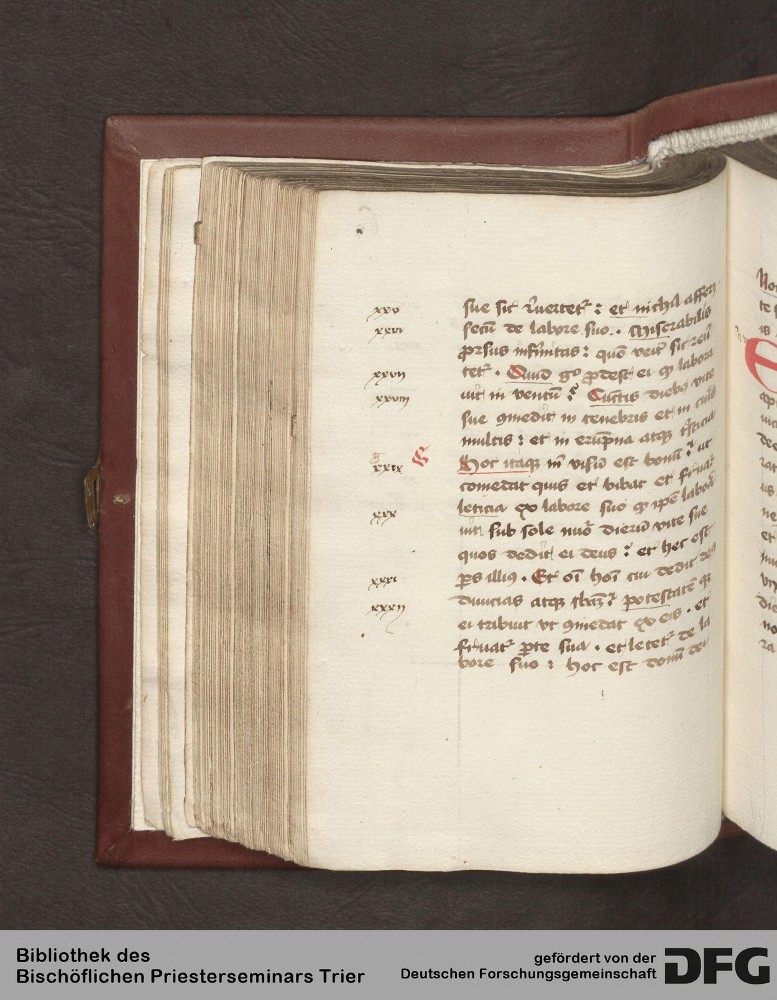 xxv sue sic reuertetr : et nichil afferet
xxvi secū de labore suo . Miserabilis
prorsus infirmitas : quō venit sic reū
xxvii tetr . Quid go prodest ei quod labora
xxviii uit in ventū ? Cunctis diebus vite
sue comedit in tenebris et in curis
multis : et in erūpna atque tristicia
xxix Hoc itaque m visū est bonū : ut
comedat quis et bibat et fruatr
leticia ex labore suo quo ipse labora
xxx uit sub sole nūo dierū vite sue
quos dedit ei deus : et hec est
xxxi pars illius . Et oī hoī cui dedit deus
xxxii diuicias atque sbāz : potestatē que
ei tribuit vt comedat ex eis . et
fruatr parte sua . et letetr de la
bore suo : hoc est donū dei
Bibliothek des
Bischöflichen Priesterseminars Trier
gefördert von der
Deutschen Forschungsgemeinschaft
DFG